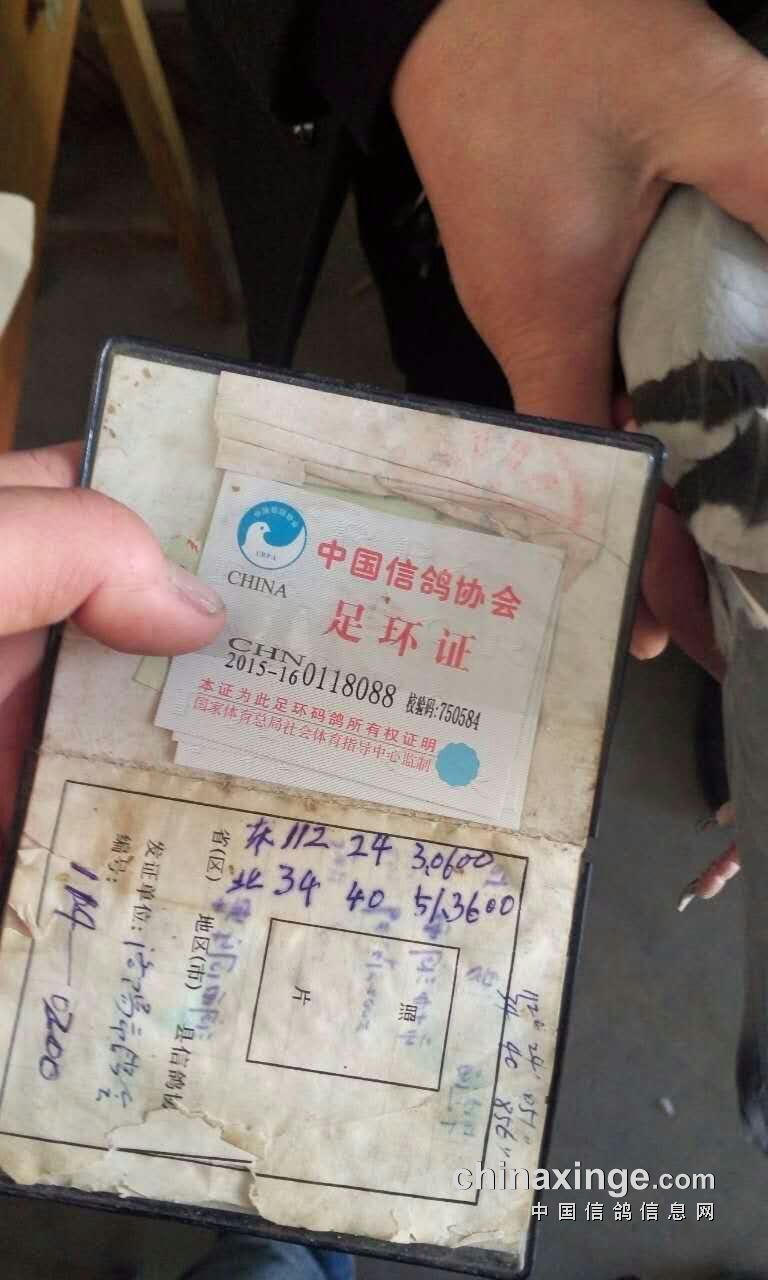 CRPA
CHINA
中国信鸽协会
足环证
CHN
2015-160118088 校验码:750584
本证为此足环码鸽所有权证明
国家体育总局社会体育指导中心监制
东 112 24 3.0600
北 34 40 51.3600
省(区)
地区(市)
县信鸽
发证单位:
编号:
0200
照
片
112° 24' 051"
34 40 856"
chinaxinge.com
中国信鸽信息网